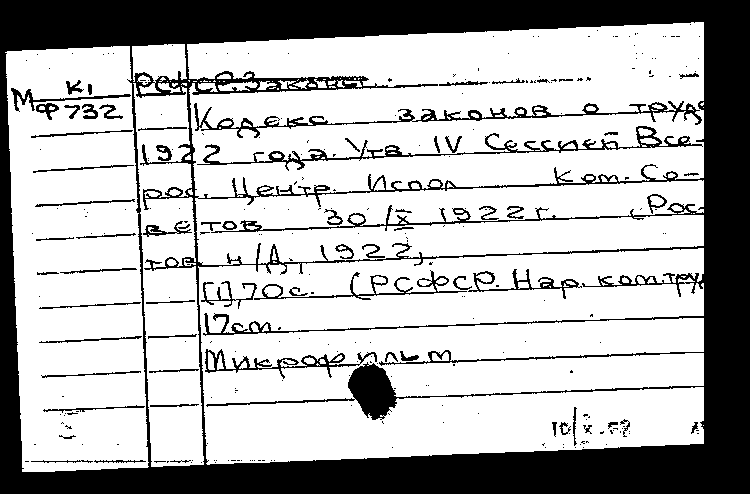 К1
РСФСР. Законы
М
Ф732
Кодекс законов о труде
1922 года. Утв. IV Сессией Все-
рос. Центр. Испол Ком. Со-
ветов 30/X 1922 г. (Рос-
тов н/Д, 1922).
[1], 70 с. (РСФСР. Нар. ком. тру
17 cm.
Микрофильм